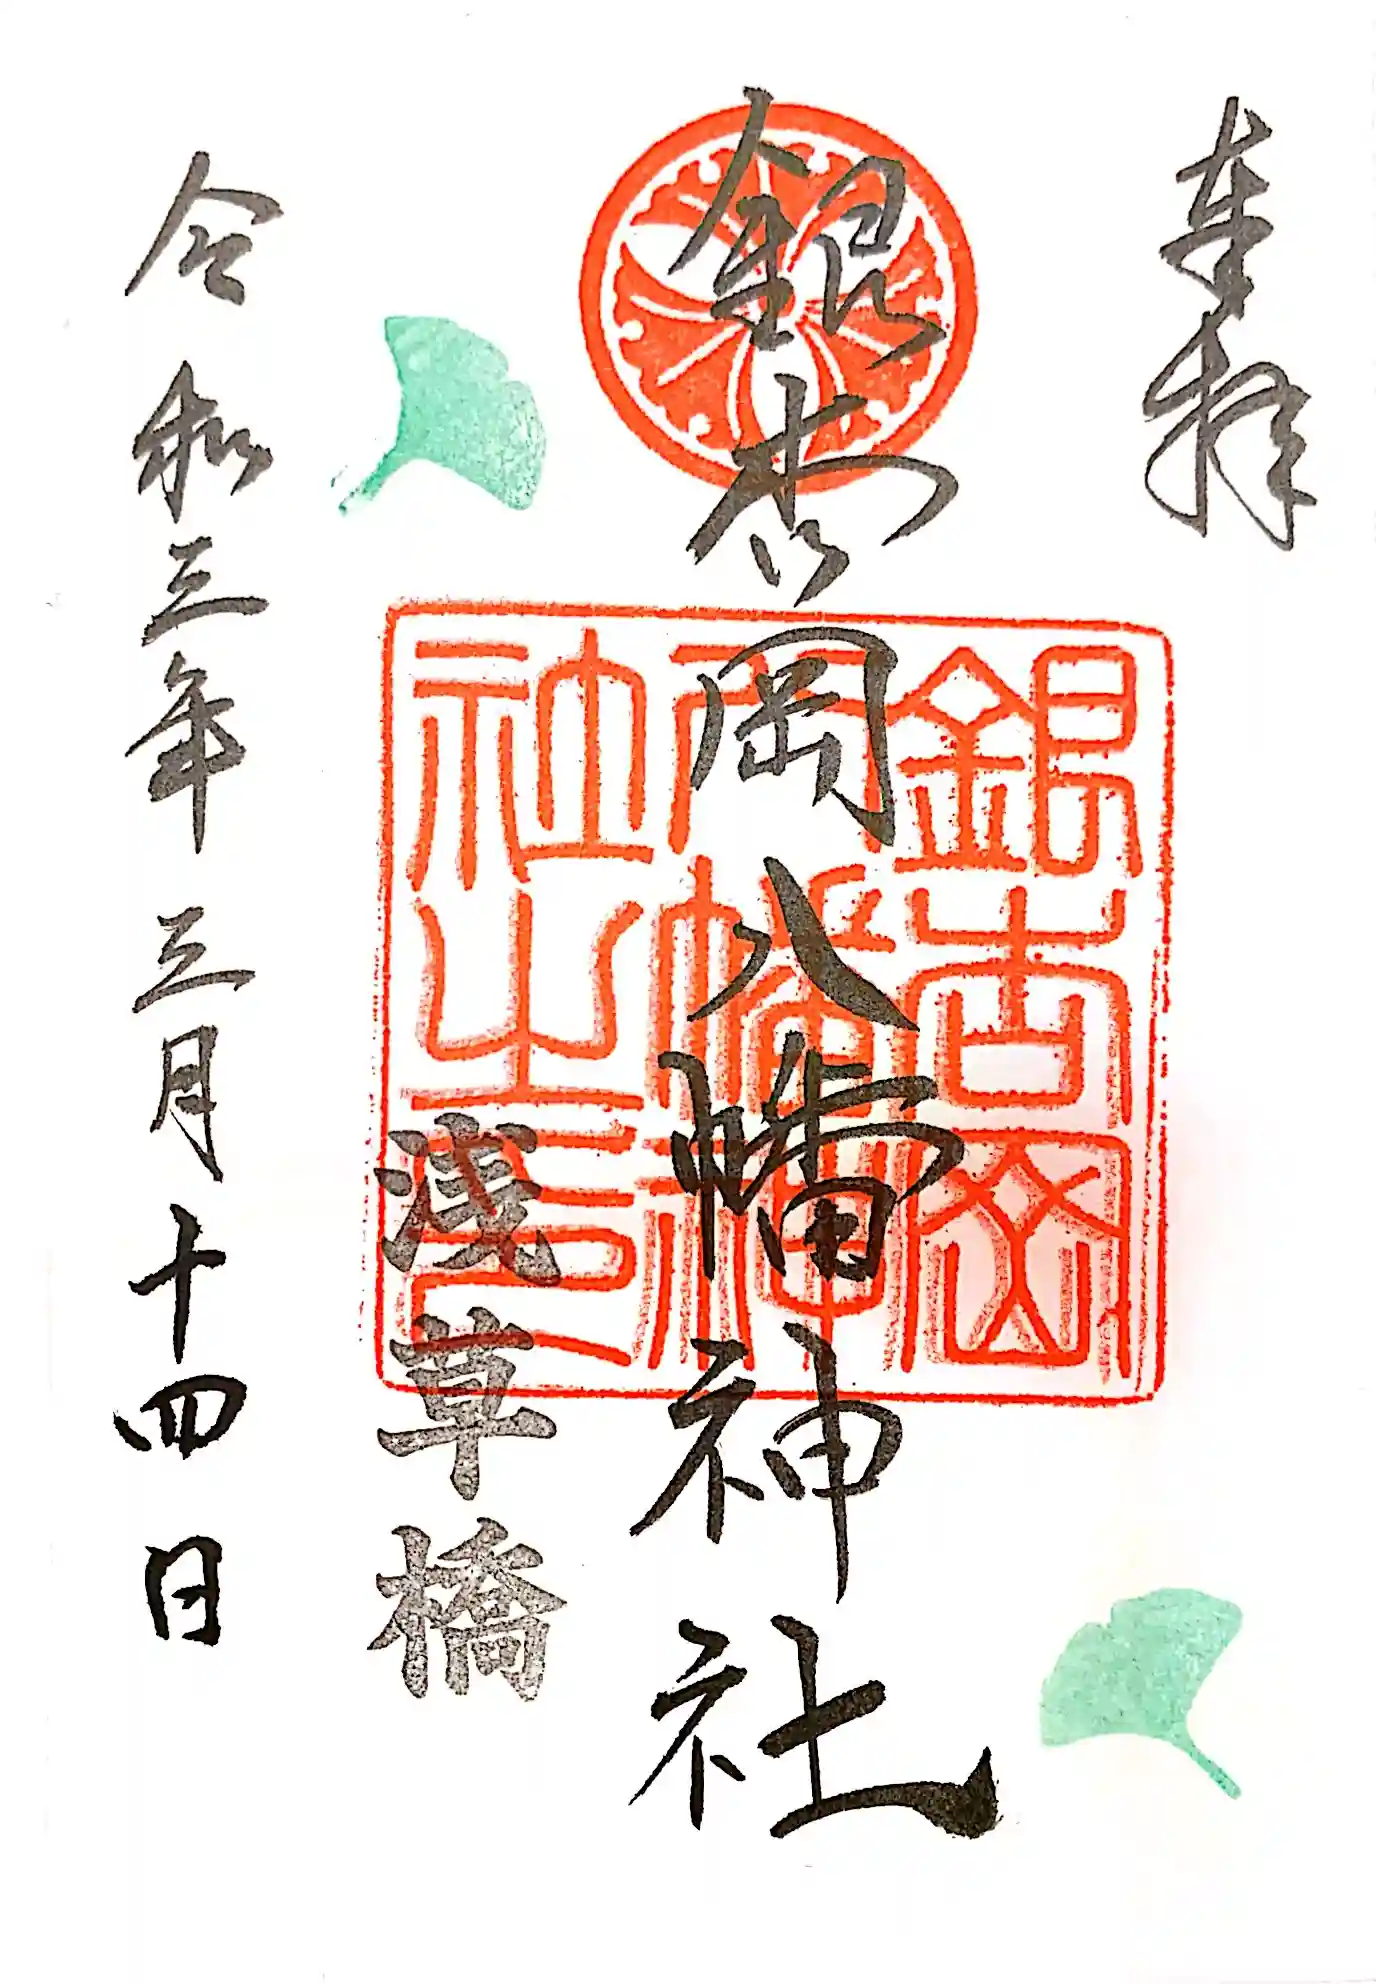 奉拝
銀杏岡八幡神社
銀杏岡
八幡神
社之印
浅草橋
令和三年三月十四日